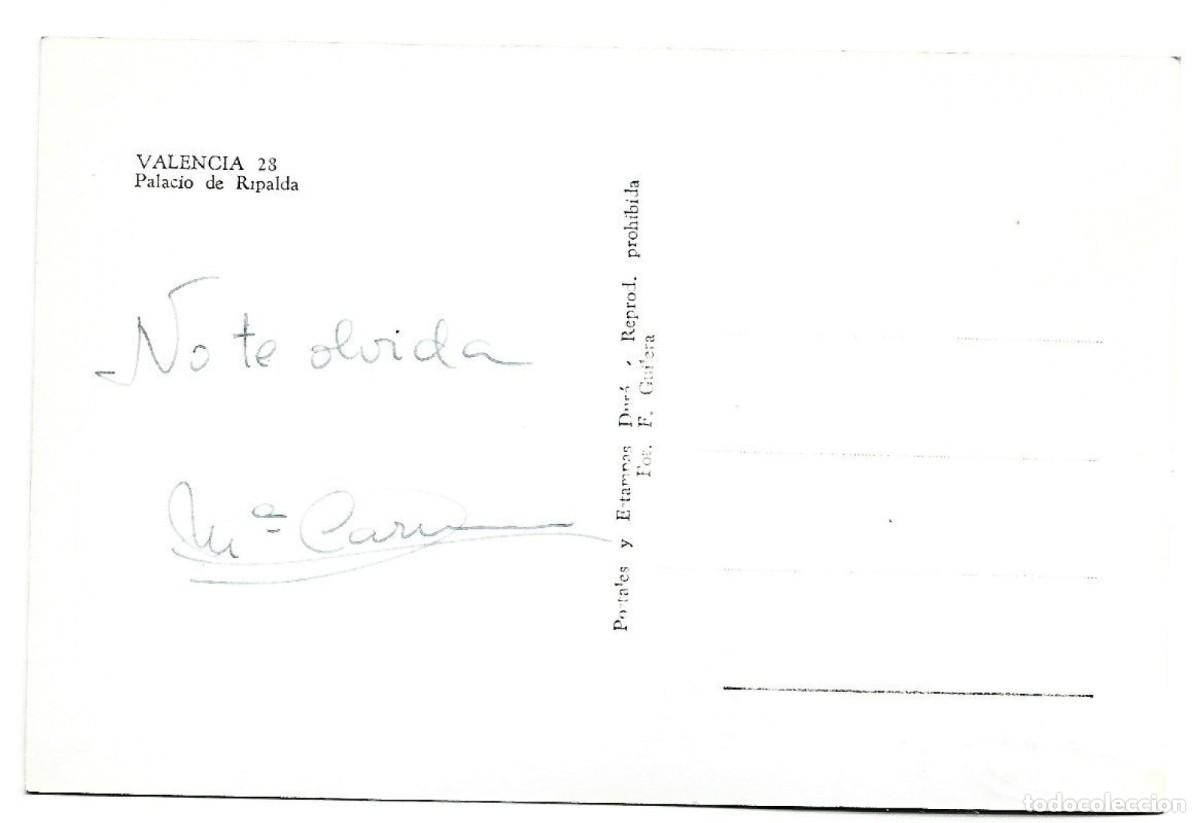 VALENCIA 28
Palacio de Ripalda
No te olvida
Mª Carmen
Postales y Estampas Durá , Reprod. prohibida
Fot. F. Guilera
todocoleccion